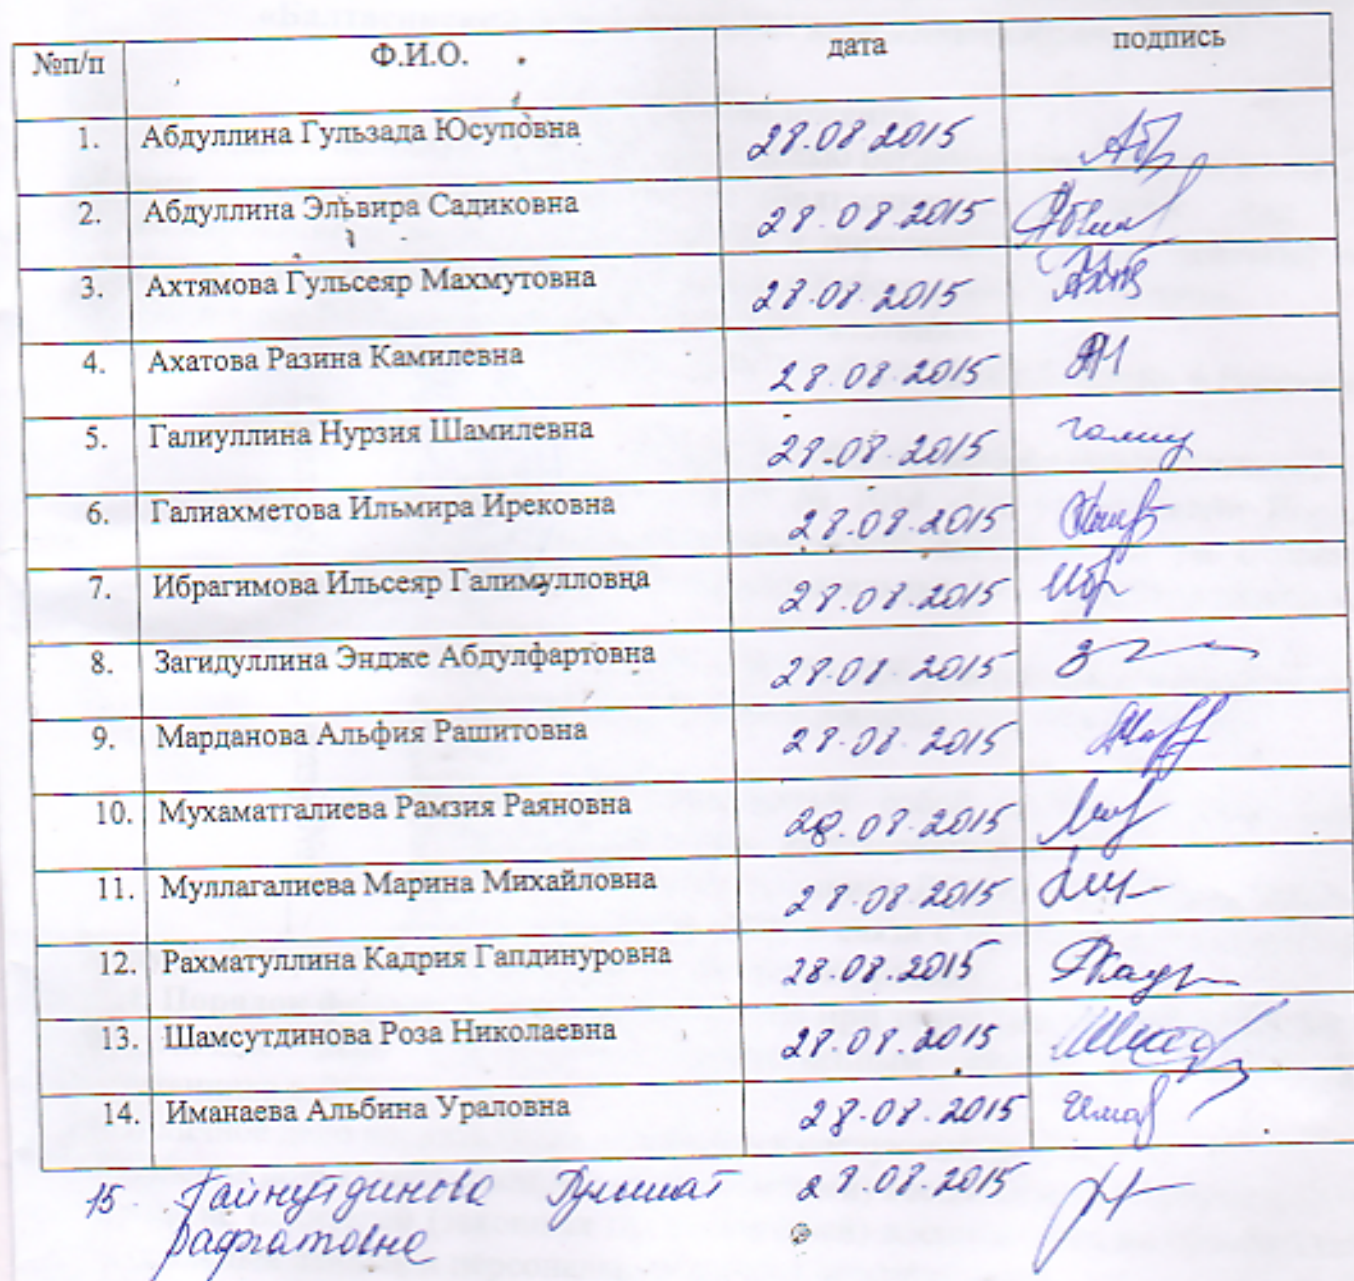 №п/п Ф.И.О. дата подпись
1. Абдуллина Гульзада Юсуповна 28.08.2015
2. Абдуллина Эльвира Садиковна 28.08.2015
3. Ахтямова Гульсеяр Махмутовна 28.08.2015
4. Ахатова Разина Камилевна 28.08.2015
5. Галиуллина Нурзия Шамилевна 28.08.2015
6. Галиахметова Ильмира Ирековна 28.08.2015
7. Ибрагимова Ильсеяр Галимулловна 28.08.2015
8. Загидуллина Эндже Абдулфартовна 28.08.2015
9. Марданова Альфия Рашитовна 28.08.2015
10. Мухаматгалиева Рамзия Раяновна 28.08.2015
11. Муллагалиева Марина Михайловна 28.08.2015
12. Рахматуллина Кадрия Гапдинуровна 28.08.2015
13. Шамсутдинова Роза Николаевна 28.08.2015
14. Иманаева Альбина Ураловна 28.08.2015
15 Гайнутдинова 28.08.2015